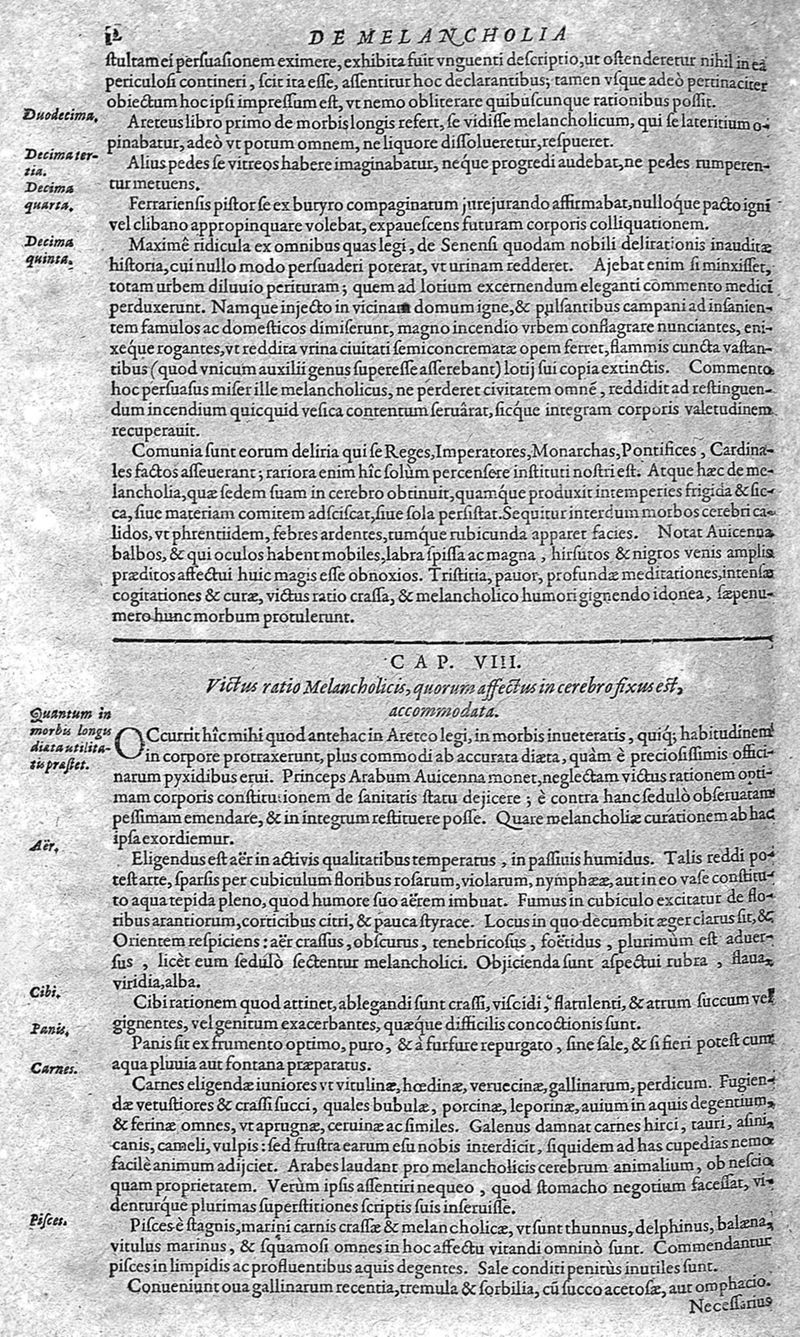 12 DE MELANCHOLIA
ſtultam ei perſuaſionem eximere, exhibita fuit vnguenti deſcriptio, ut oſtenderetur nihil in ea
periculoſi contineri, ſcit ita eſſe, aſſentitur hoc declarantibus; tamen vſque adeò pertinaciter
obiectum hoc ipſi impreſſum eſt, vt nemo obliterare quibuſcunque rationibus poſſit.
Duodecima.
Areteus libro primo de morbis longis refert, ſe vidiſſe melancholicum, qui ſe lateritium o-
pinabatur, adeò vt potum omnem, ne liquore diſſolueretur, reſpueret.
Decima ter-
tia.
Alius pedes ſe vitreos habere imaginabatur, neque progredi audebat, ne pedes rumperen-
tur metuens.
Decima
quarta.
Ferrarienſis piſtor ſe ex butyro compaginatum jurejurando affirmabat, nulloque pacto igni
vel clibano appropinquare volebat, expaueſcens futuram corporis colliquationem.
Decima
quinta.
Maximè ridicula ex omnibus quas legi, de Senenſi quodam nobili delirationis inauditæ
hiſtoria, cui nullo modo perſuaderi poterat, vt urinam redderet. Ajebat enim ſi minxiſſet,
totam urbem diluuio perituram; quem ad lotium excernendum eleganti commento medici
perduxerunt. Namque injecto in vicinam domum igne, & pulſantibus campani ad inſanien-
tem famulos ac domeſticos dimiſerunt, magno incendio vrbem conflagrare nunciantes, eni-
xéque rogantes, vt reddita vrina ciuitati ſemiconcrematæ opem ferret, flammis cuncta vaſtan-
tibus (quod vnicum auxilii genus ſupereſſe aſſerebant) lotij ſui copia extinctis. Commento
hoc perſuaſus miſer ille melancholicus, ne perderet civitatem omnē, reddidit ad reſtinguen-
dum incendium quicquid veſica contentum ſeruârat, ſicque integram corporis valetudinem
recuperauit.
Comunia ſunt eorum deliria qui ſe Reges, Imperatores, Monarchas, Pontifices, Cardina-
les factos aſſeuerant; rariora enim hîc ſolùm percenſere inſtituti noſtri eſt. Atque hæc de me-
lancholia, quæ ſedem ſuam in cerebro obtinuit, quamque produxit intemperies frigida & ſic-
ca, ſiue materiam comitem adſciſcat, ſiue ſola perſiſtat. Sequitur interdum morbos cerebri ca-
lidos, vt phrentiidem, febres ardentes, tumque rubicunda apparet facies. Notat Auicenna
balbos, & qui oculos habent mobiles, labra ſpiſſa ac magna, hirſutos & nigros venis amplis
præditos affectui huic magis eſſe obnoxios. Triſtitia, pauor, profundæ meditationes, intenſæ
cogitationes & curæ, victus ratio craſſa, & melancholico humori gignendo idonea, ſæpenu-
mero hunc morbum protulerunt.
CAP. VIII.
Victus ratio Melancholicis, quorum affectus in cerebro fixus eſt,
accommodata.
Quantum in
morbis longis
diæta utilita-
tis præſtet.
OCcurrit hîc mihi quod antehac in Areteo legi, in morbis inueteratis, quiq; habitudinem
in corpore protraxerunt, plus commodi ab accurata diæta, quàm è precioſiſſimis offici-
narum pyxidibus erui. Princeps Arabum Auicenna monet, neglectam victus rationem opti-
mam corporis conſtitutionem de ſanitatis ſtatu dejicere; è contra hanc ſedulò obſeruatam
peſſimam emendare, & in integrum reſtituere poſſe. Quare melancholiæ curationem ab hac
ipſa exordiemur.
Aër.
Eligendus eſt aër in activis qualitatibus temperatus, in paſſiuis humidus. Talis reddi po-
teſt arte, ſparſis per cubiculum floribus roſarum, violarum, nymphææ, aut in eo vaſe conſtitu-
to aqua tepida pleno, quod humore ſuo aërem imbuat. Fumus in cubiculo excitatur de flo-
ribus arantiorum, corticibus citri, & pauca ſtyrace. Locus in quo decumbit æger clarus ſit, &
Orientem reſpiciens: aër craſſus, obſcurus, tenebricoſus, foëtidus, plurimùm eſt aduer-
ſus, licèt eum ſedulò ſectentur melancholici. Objicienda ſunt aſpectui rubra, flaua,
viridia, alba.
Cibi.
Cibi rationem quod attinet, ablegandi ſunt craſſi, viſcidi, flatulenti, & atrum ſuccum vel
gignentes, vel genitum exacerbantes, quæque difficilis concoctionis ſunt.
Panis.
Panis ſit ex frumento optimo, puro, & à furfure repurgato, ſine ſale, & ſi fieri poteſt cum
aqua pluuia aut fontana præparatus.
Carnes.
Carnes eligendæ iuniores vt vitulinæ, hœdinæ, veruecinæ, gallinarum, perdicum. Fugien-
dæ vetuſtiores & craſſi ſucci, quales bubulæ, porcinæ, leporinæ, auium in aquis degentium,
& ferinæ omnes, vt aprugnæ, ceruinæ ac ſimiles. Galenus damnat carnes hirci, tauri, aſini,
canis, cameli, vulpis: ſed fruſtra earum eſu nobis interdicit, ſiquidem ad has cupedias nemo
facilè animum adijciet. Arabes laudant pro melancholicis cerebrum animalium, ob neſcio
quam proprietatem. Verùm ipſis aſſentiri nequeo, quod ſtomacho negotium faceſſat, vi-
denturque plurimas ſuperſtitiones ſcriptis ſuis inſeruiſſe.
Piſces.
Piſces è ſtagnis, marini carnis craſſæ & melancholicæ, vt ſunt thunnus, delphinus, balæna,
vitulus marinus, & ſquamoſi omnes in hoc affectu vitandi omninò ſunt. Commendantur
piſces in limpidis ac profluentibus aquis degentes. Sale conditi penitùs inutiles ſunt.
Conueniunt oua gallinarum recentia, tremula & ſorbilia, cū ſucco acetoſæ, aut omphacio.
Neceſſarius